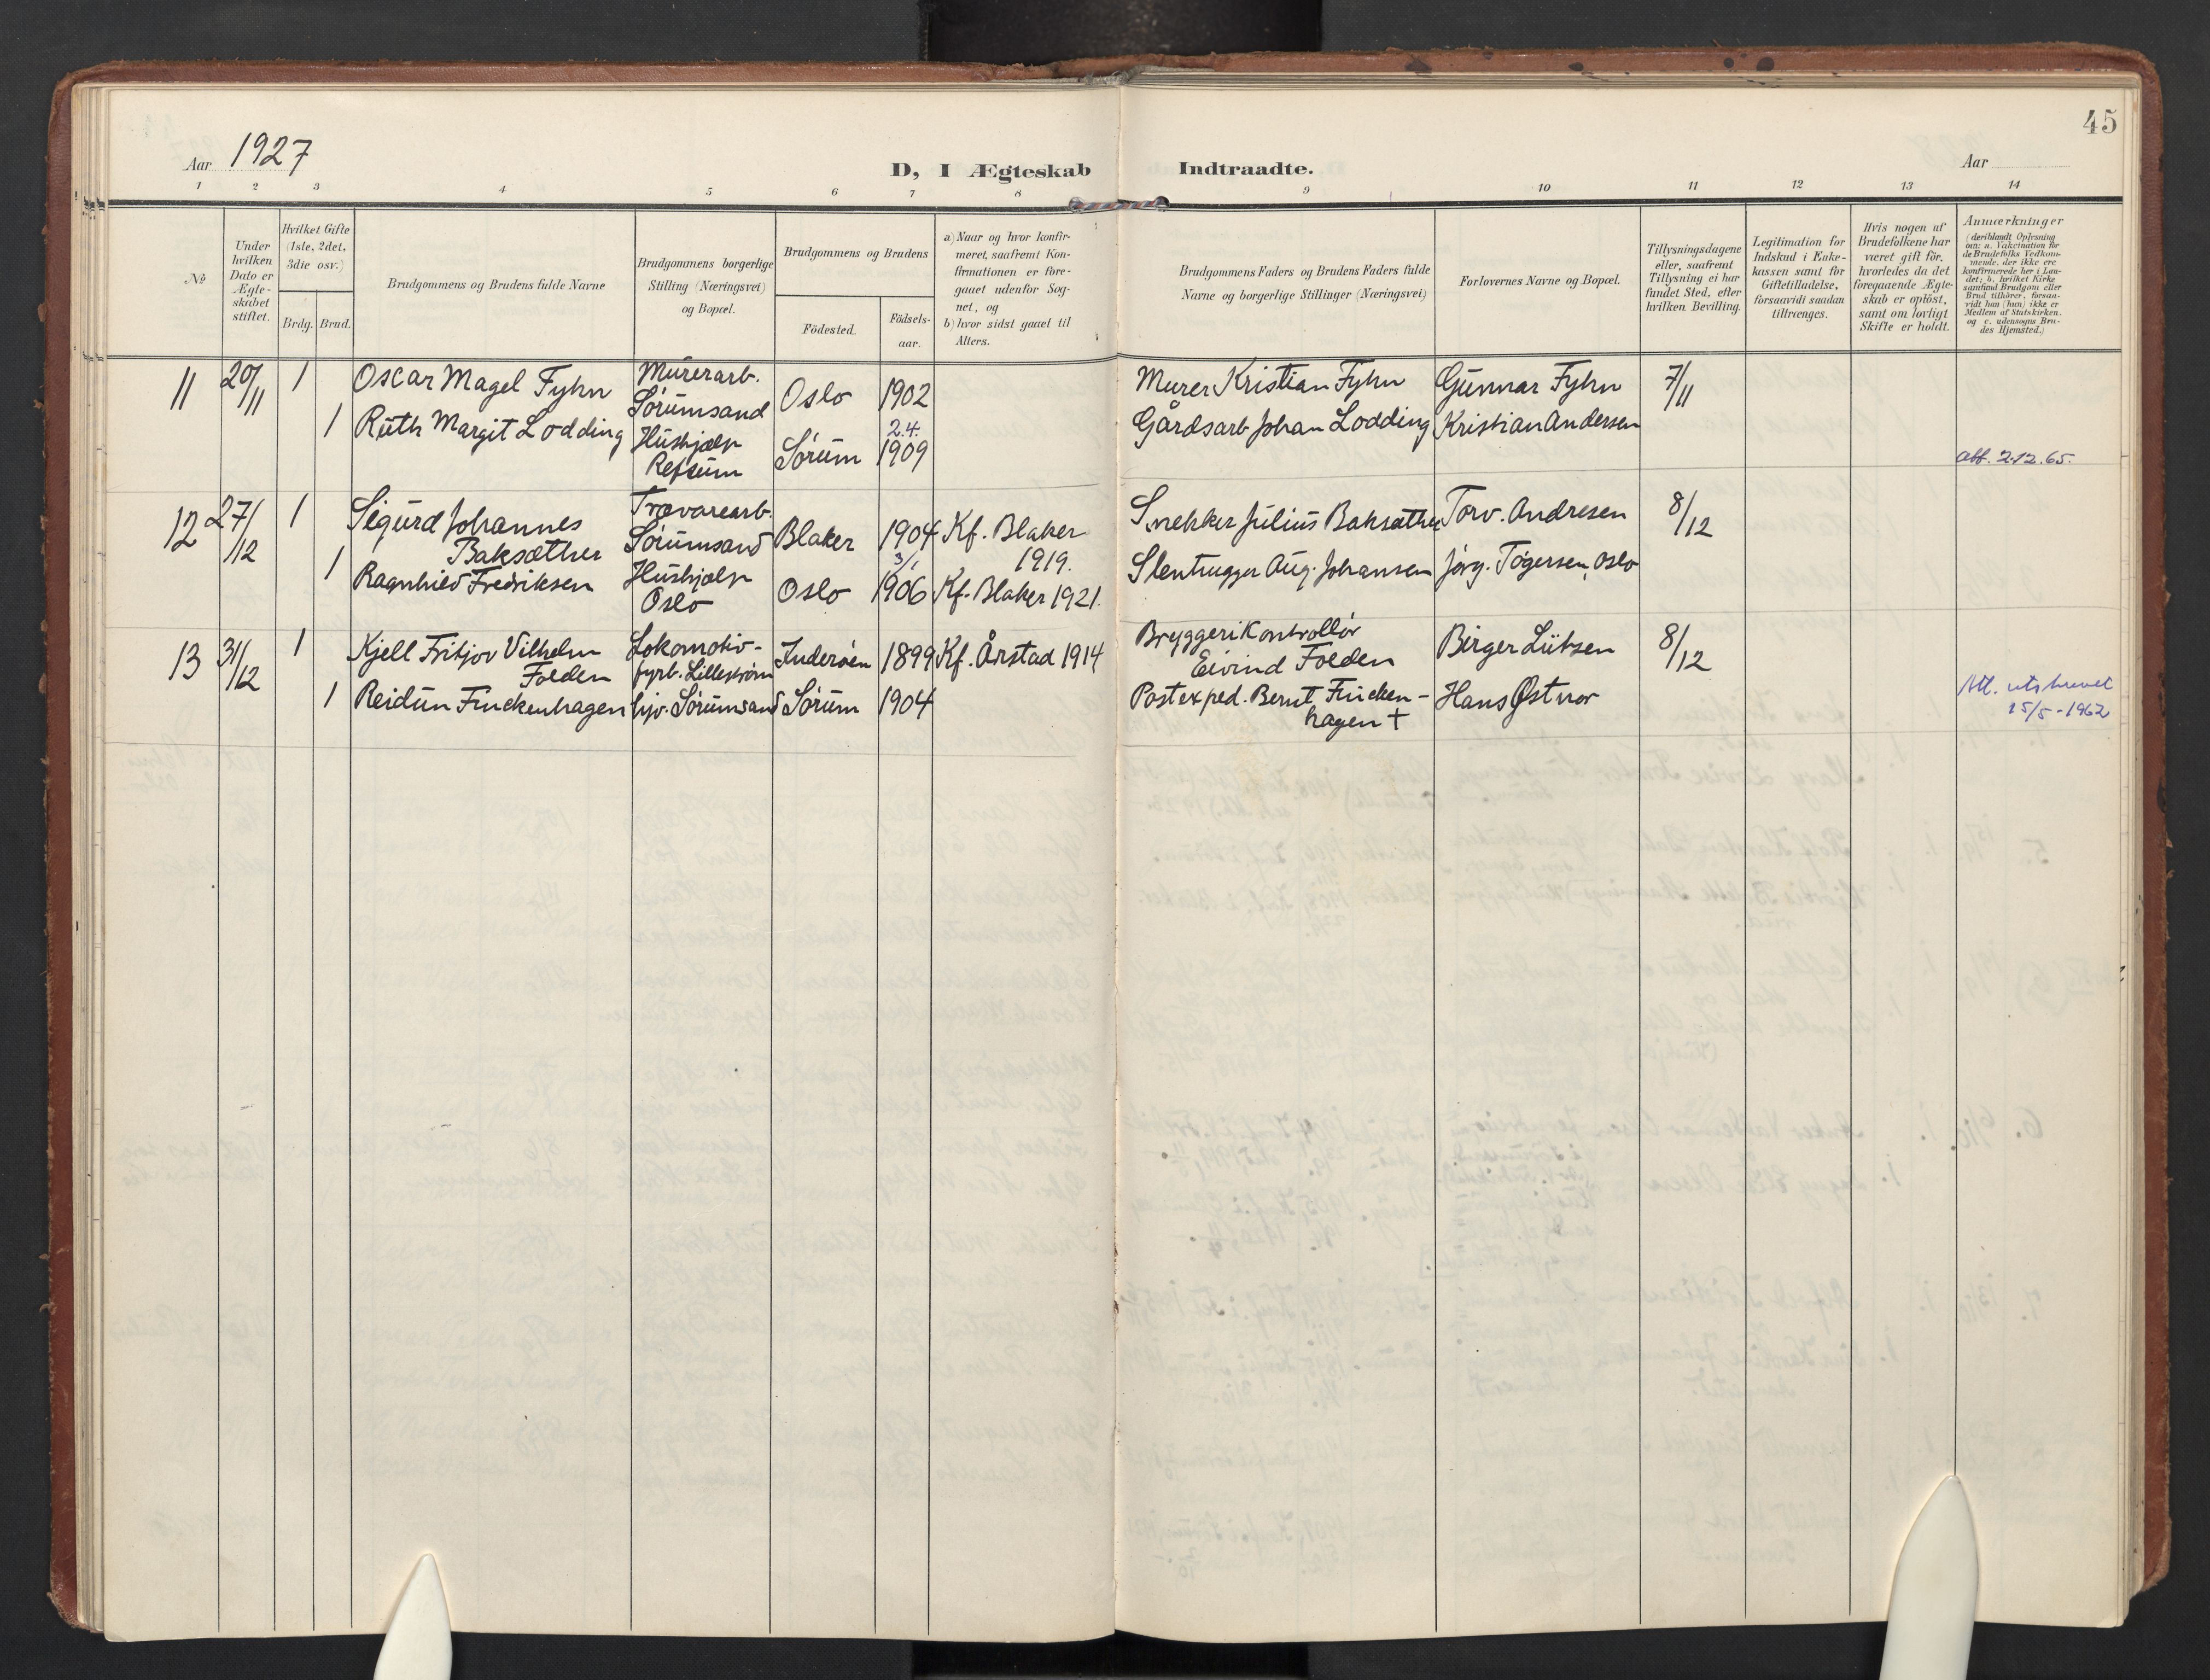 45
Aar 1927
D, I Ægteskab Indtraadte.
Aar
1 2 3 4 5 6 7 8 9 10 11 12 13 14
№
Under hvilken Dato er Ægteskabet stiftet.
Hvilket Gifte (1ste, 2det, 3die osv.)
Brdg. Brud.
Brudgommens og Brudens fulde Navne
Brudgommens borgerlige Stilling (Næringsvei) og Bopæl.
Brudgommens og Brudens
Födested.
Födsels-aar.
a) Naar og hvor konfirmeret, saafremt Konfirmationen er foregaaet udenfor Sognet, og
b) hvor sidst gaaet til Alters.
Brudgommens Faders og Brudens Faders fulde Navne og borgerlige Stillinger (Næringsvei)
Forlovernes Navne og Bopæl.
Tillysningsdagene eller, saafremt Tillysning ei har fundet Sted, efter hvilken Bevilling.
Legitimation for Indskud i Enkekassen samt for Giftetilladelse, forsaavidt saadan tiltrænges.
Hvis nogen af Brudefolkene har været gift før, hvorledes da det foregaaende Ægteskab er oplöst, samt om lovligt Skifte er holdt.
Anmærkninger
(deriblandt Oplysning om: a. Vakcination for de Brudefolks Vedkommende, der ikke ere konfirmerede her i Landet; b. hvilket Kirkesamfund Brudgom eller Brud tilhörer, forsaavidt han (hun) ikke er Medlem af Statskirken. og c. udensogns Brudes Hjemsted.)
11 20/11 1 Oscar Magel Fyhn Murerarb. Sørumsand Oslo 1902 Murer Kristian Fyhn Gunnar Fyhn 7/11
1 Ruth Margit Lodding Hushjælp Refsum Sørum 2.4. 1909 Gårdsarb Johan Lodding Kristian Andersen att. 2.12.65.
12 27/12 1 Sigurd Johannes Baksæther Trævarearb. Sørumsand Blaker 1904 Kf. Blaker 1919. Snekker Julius Baksæther Torv. Andresen 8/12
1 Ragnhild Fredriksen Hushjælp Oslo Oslo 3/1 1906 Kf. Blaker 1921. Stentrugger Aug. Johansen Jörg. Tøgersen, Oslo
13 31/12 1 Kjell Fritjov Vilhelm Folden Lokomotiv-fyrb. Lillestrøm Inderøen 1899 Kf. Årstad 1914 Bryggerikontrollør Eivind Folden Birger Lütsen 8/12
1 Reidun Finckenhagen hjv. Sørumsand Sørum 1904 Postexped. Bernt Fincken-hagen † Hans Østnor Att. utskrevet 15/5-1962